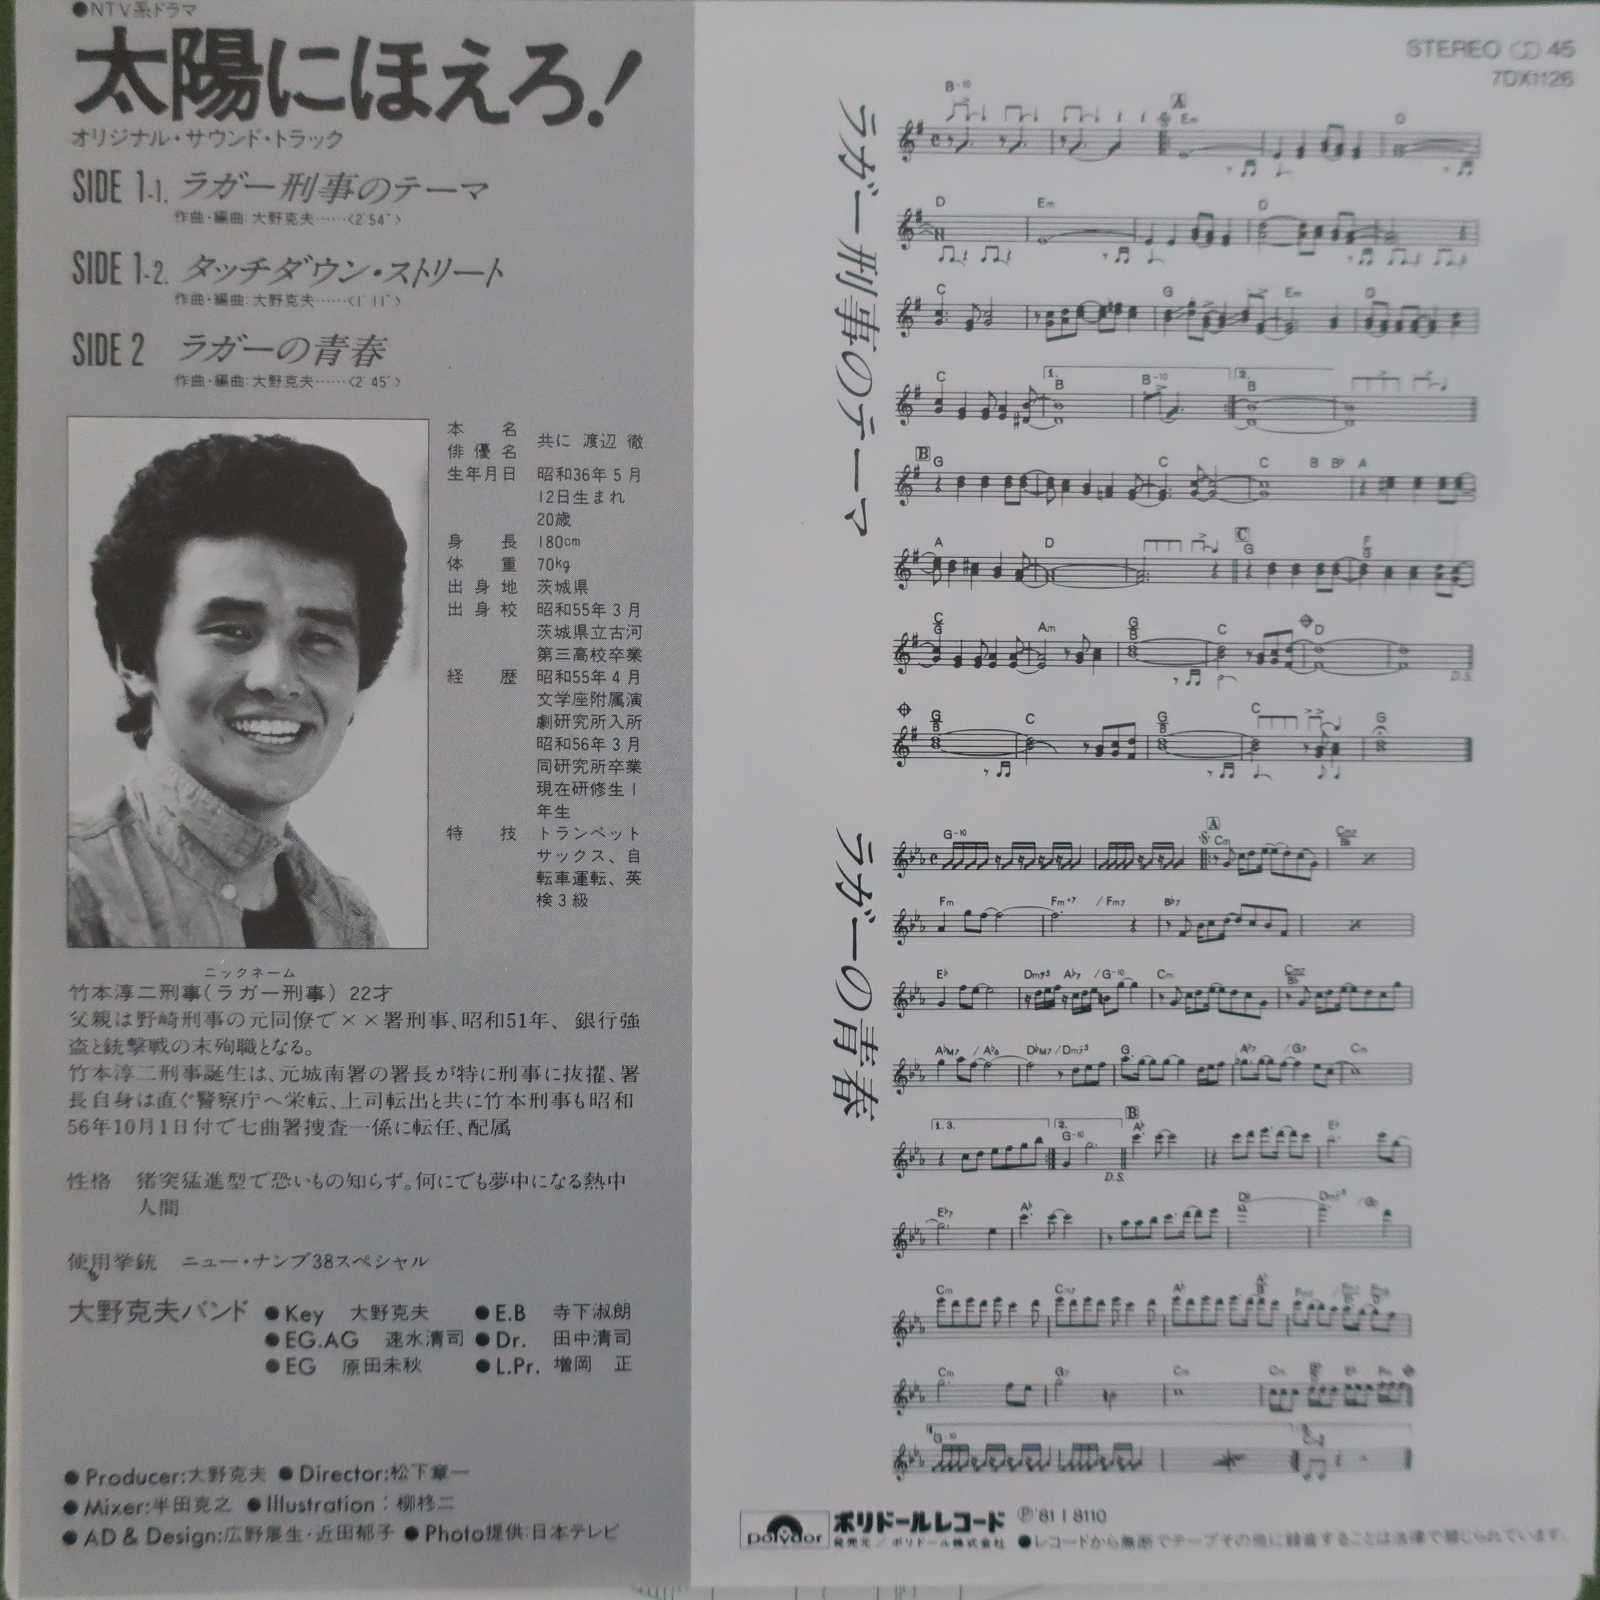 ●NTV系ドラマ
太陽にほえろ!
オリジナル・サウンド・トラック
SIDE 1-1. ラガー刑事のテーマ
作曲・編曲:大野克夫……〈2'54"〉
SIDE 1-2. タッチダウン・ストリート
作曲・編曲:大野克夫……〈1'11"〉
SIDE 2 ラガーの青春
作曲・編曲:大野克夫……〈2'45"〉
本名
俳優名 共に 渡辺 徹
生年月日 昭和36年5月
12日生まれ
20歳
身長 180cm
体重 70kg
出身地 茨城県
出身校 昭和55年3月
茨城県立古河
第三高校卒業
経歴 昭和55年4月
文学座附属演
劇研究所入所
昭和56年3月
同研究所卒業
現在研修生1
年生
特技 トランペット
サックス、自
転車運転、英
検3級
ニックネーム
竹本淳二刑事(ラガー刑事) 22才
父親は野崎刑事の元同僚で××署刑事、昭和51年、銀行強
盗と銃撃戦の末殉職となる。
竹本淳二刑事誕生は、元城南署の署長が特に刑事に抜擢、署
長自身は直ぐ警察庁へ栄転、上司転出と共に竹本刑事も昭和
56年10月1日付で七曲署捜査一係に転任、配属
性格 猪突猛進型で恐いもの知らず。何にでも夢中になる熱中
人間
使用拳銃 ニュー・ナンブ38スペシャル
大野克夫バンド ●Key 大野克夫 ●E.B 寺下淑朗
●EG.AG 速水清司 ●Dr. 田中清司
●EG 原田末秋 ●L.Pr. 増岡 正
●Producer:大野克夫 ●Director:松下章一
●Mixer:半田克之 ●Illustration:柳柊二
●AD & Design:広野展生・近田郁子 ●Photo提供:日本テレビ
STEREO 45
7DX1126
ラガー刑事のテーマ
B-10 A Em D
D Em D
C G Em D
C 1. B B-10 2. B
B G C C B B7 A
A D C G F/G
C/G Am G/B C D
D.S.
G/B C G/B C G
ラガーの青春
G-10 A Cm
Fm Fm+7 /Fm7 B♭7
E♭ Dm7-5 A♭7 /G-10 Cm
A♭M7 /A♭6 D♭M7/Dm7-5 G A♭7 /G7 Cm
1.3. 2. G-10 B A♭ E♭
D.S.
E♭7 A♭
Cm Cm7 A♭
Cm G7 Cm Cm
G-10
polydor ポリドールレコード Ⓟ'81 I 8110
発売元/ポリドール株式会社 ●レコードから無断でテープその他に録音することは法律で禁じられています。